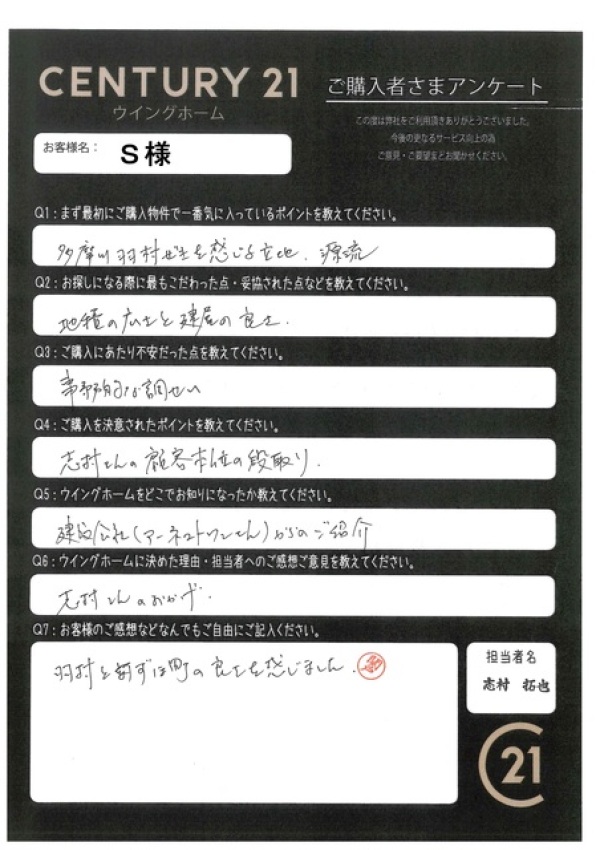 CENTURY 21
ウイングホーム
ご購入者さまアンケート
この度は弊社をご利用頂きありがとうございました。
今後の更なるサービス向上の為
ご意見・ご要望をお聞かせください。
お客様名： S様
Q1：まず最初にご購入物件で一番気に入っているポイントを教えてください。
多摩川 羽村 を感じる立地、源流
Q2：お探しになる際に最もこだわった点・妥協された点などを教えてください。
地積の広さと建屋の良さ.
Q3：ご購入にあたり不安だった点を教えてください。
Q4：ご購入を決意されたポイントを教えてください。
志村さんの顧客本位の段取り.
Q5：ウイングホームをどこでお知りになったか教えてください。
建設会社(アーネストワンさん)からのご紹介
Q6：ウイングホームに決めた理由・担当者へのご感想ご意見を教えてください。
志村さんのおかげ.
Q7：お客様のご感想などなんでもご自由にご記入ください。
羽村 町の良さを感じました.
担当者名
志村 拓也
C21